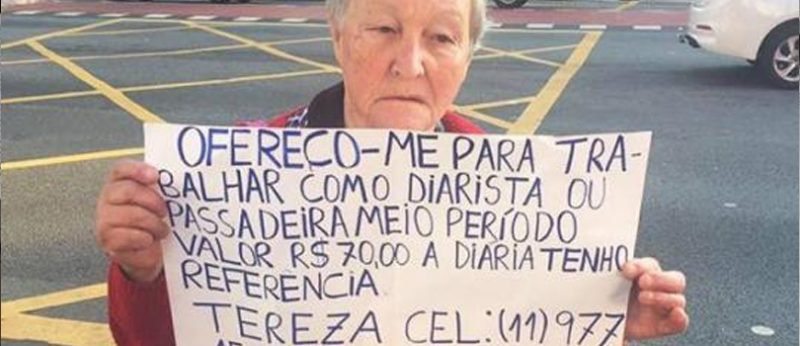 OFEREÇO-ME PARA TRA-
BALHAR COMO DIARISTA OU
PASSADEIRA MEIO PERÍODO
VALOR R$ 70,00 A DIARIA TENHO
REFERÊNCIA
TEREZA CEL: (11) 977